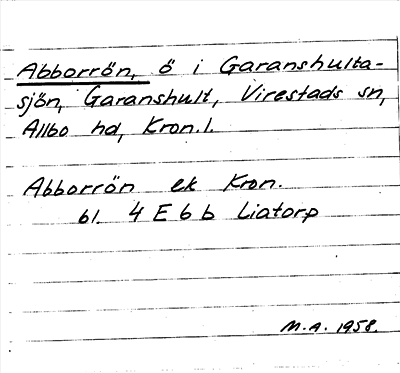 Abborrön, ö i Garanshulta-
sjön, Garanshult, Virestads sn,
Allbo hd, Kron.l.
Abborrön ek Kron.
bl. 4 E 6 b Liatorp
M.A. 1958.